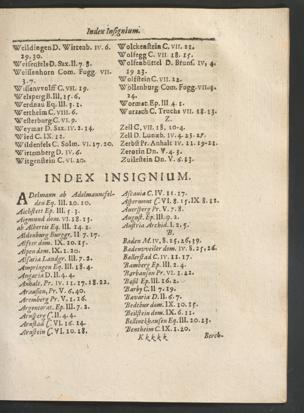 Index Insignium.
Weildingen D. Wirtenb. IV. 6.
29, 30.
Weissenfels D. Sax. II. 7. 8.
Weissenhorn Com. Fugg. VII.
3. 7.
Welsperg B. III, 15. 6.
Werdnau Eq. III. 3. 1.
Wertheim C. VIII. 6.
Westerburg C. VI. 9.
Weymar D. Sax. IV. 2. 14.
Wied C. IX. 12.
Wildenfels C. Solm. VI. 17. 20.
Wirtemberg D. IV. 6.
Witgenstein C. VI. 20.
Wolckenstein C. VII. 21.
Wolfegg C. VII. 18. 15.
Wolfenbüttel D. Brunf. IV, 4.
19 23.
Wolfstein C. VII. 22.
Wöllenburg Com. Fugg. VII. 3.
24.
Wormat. Ep. III 4. 1.
Wurzach C. Truchs VII. 18. 13.
Z.
Zeil C, VII, 18, 10-4.
Zell D. Lunæb. IV. 4. 23. 25.
Zerbst Pr. Anhalt IV. 11. 19-21.
Zerotin Dn. V. 4. 5.
Zuilestein Dn. V. 6. 23.
INDEX INSIGNIUM.
Adelmann ab Adelmannsfel-
den Eq. III. 20. 10.
Aichstett Ep. III. 5. 3.
Aigmund dom. VI. 18. 15.
ab Albertis Eq. III. 14. 2.
Aldenburg Burggr. II 7. 17.
Alster dom. IX. 10. 15.
Alpen dom. IX. 1. 20.
Alsatia Landgr. III. 7. 2.
Ampringen Eq. III. 18. 4.
Angaria D. II. 4. 4.
Anhalt. Pr. IV. 11. 17. 18. 22.
Arausion, Pr. V. 6. 40.
Aremberg Pr. V. 1. 16.
Argentorat. Ep. III. 7. 2.
Arnsberg C. II. 4. 4.
Arnstad C. VI. 16. 14.
Arnstein C. VI. 10. 18.
Ascania C. IV. 11. 17.
Aspermont C. VI. 8. 15. IX. 8. 12.
Auersperg Pr. V. 7. 8.
August. Ep. III. 9. 2.
Austria Archid. I. 1. 5.
B.
Baden M. IV, 8. 25, 26, 39.
Badenweyler dom. IV. 8. 25, 26.
Ballerstad C. IV. 11. 17.
Bamberg Ep. III. 2. 4.
Barbanson Pr. VI. 1. 22.
Basil Ep. III. 16. 2.
Barby C. II 7. 19.
Bavaria D. II. 6. 7.
Bedebur dom. IX. 10. 15.
Beilstein dom. IX. 6. 11.
Bellinckhausen Eq. III. 20. 13.
Bentheim C. IX. 1. 20.
Kkkkk
Berch-